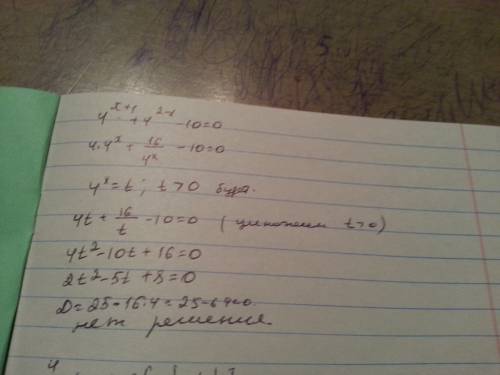 4^{x+1} + 4^{2-x} - 10 = 0
4·4^x + 16/4^x - 10 = 0
4^x = t; t > 0
4t + 16/t - 10 = 0 ( t>0)
4t² - 10t + 16 = 0
2t² - 5t + 8 = 0
D = 25 - 16·4 = 25 - 64<0.
нет решения.